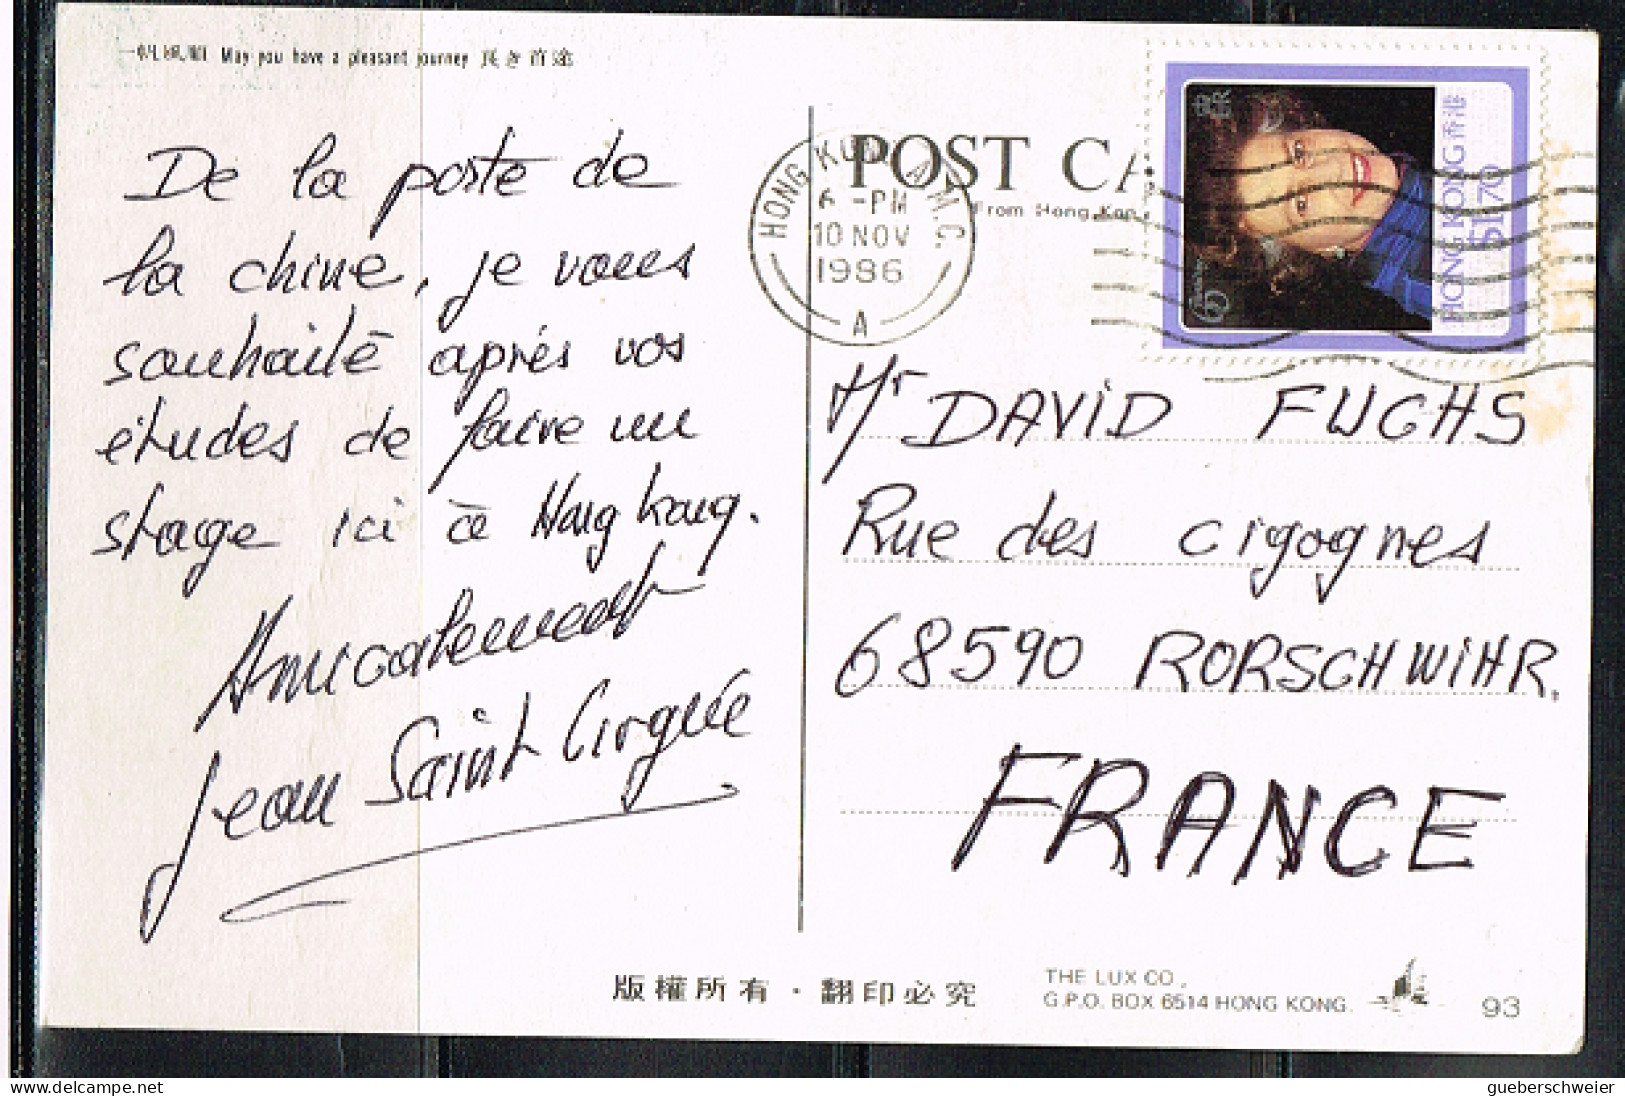 一帆風順 May you have a pleasant journey 良き前途
De la poste de
la chine, je vous
souhaite après vos
études de faire un
stage ici à Hong kong.
Amicalement
Jean Saint Cirguée
POST CA
From Hong Kon
HONG KONG A.M.C.
6 - PM
10 NOV
1986
A
HONG KONG 香港
$1.70
60
Mr DAVID FUCHS
Rue des cigognes
68590 RORSCHWIHR.
FRANCE
版權所有 · 翻印必究
THE LUX CO.,
G.P.O. BOX 6514 HONG KONG.
93
delcampe.net
gueberschweier